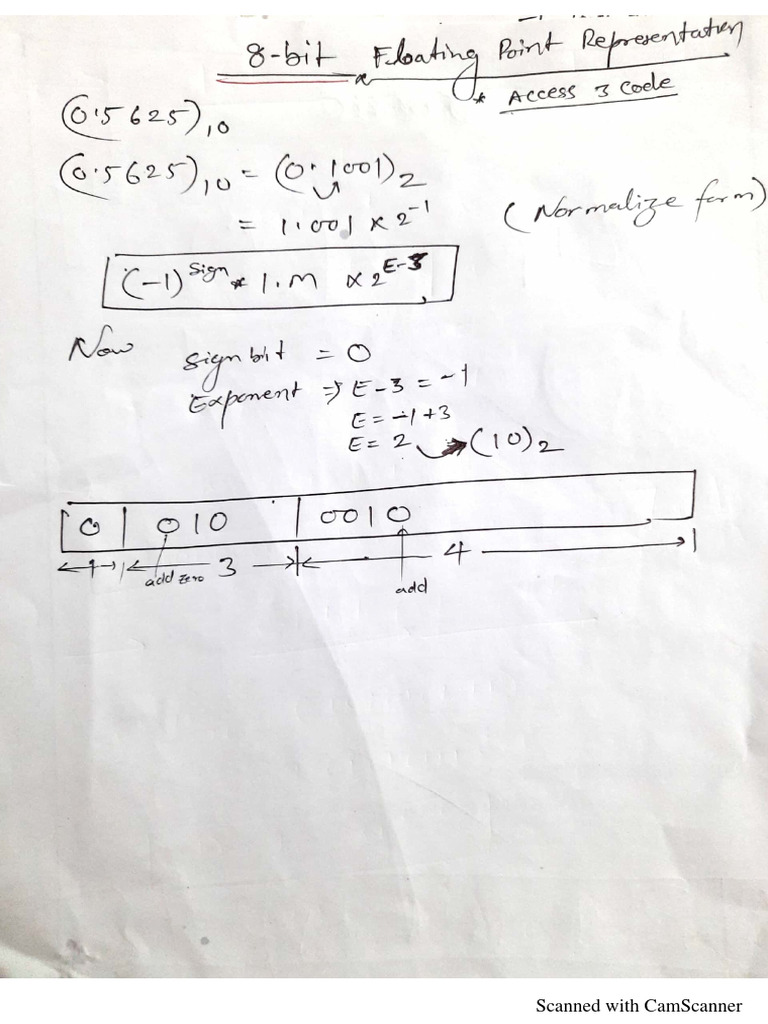 8-bit Floating Point Representation
* Access 3 code
(0.5625)₁₀
(0.5625)₁₀ = (0.1001)₂
= 1.001 × 2⁻¹ (Normalize form)
(-1)^Sign * 1.M × 2^E-3
Now Sign bit = 0
Exponent ⇒ E-3 = -1
E = -1+3
E = 2 → (10)₂
0 | 010 | 0010
1 3 4
add zero add
Scanned with CamScanner